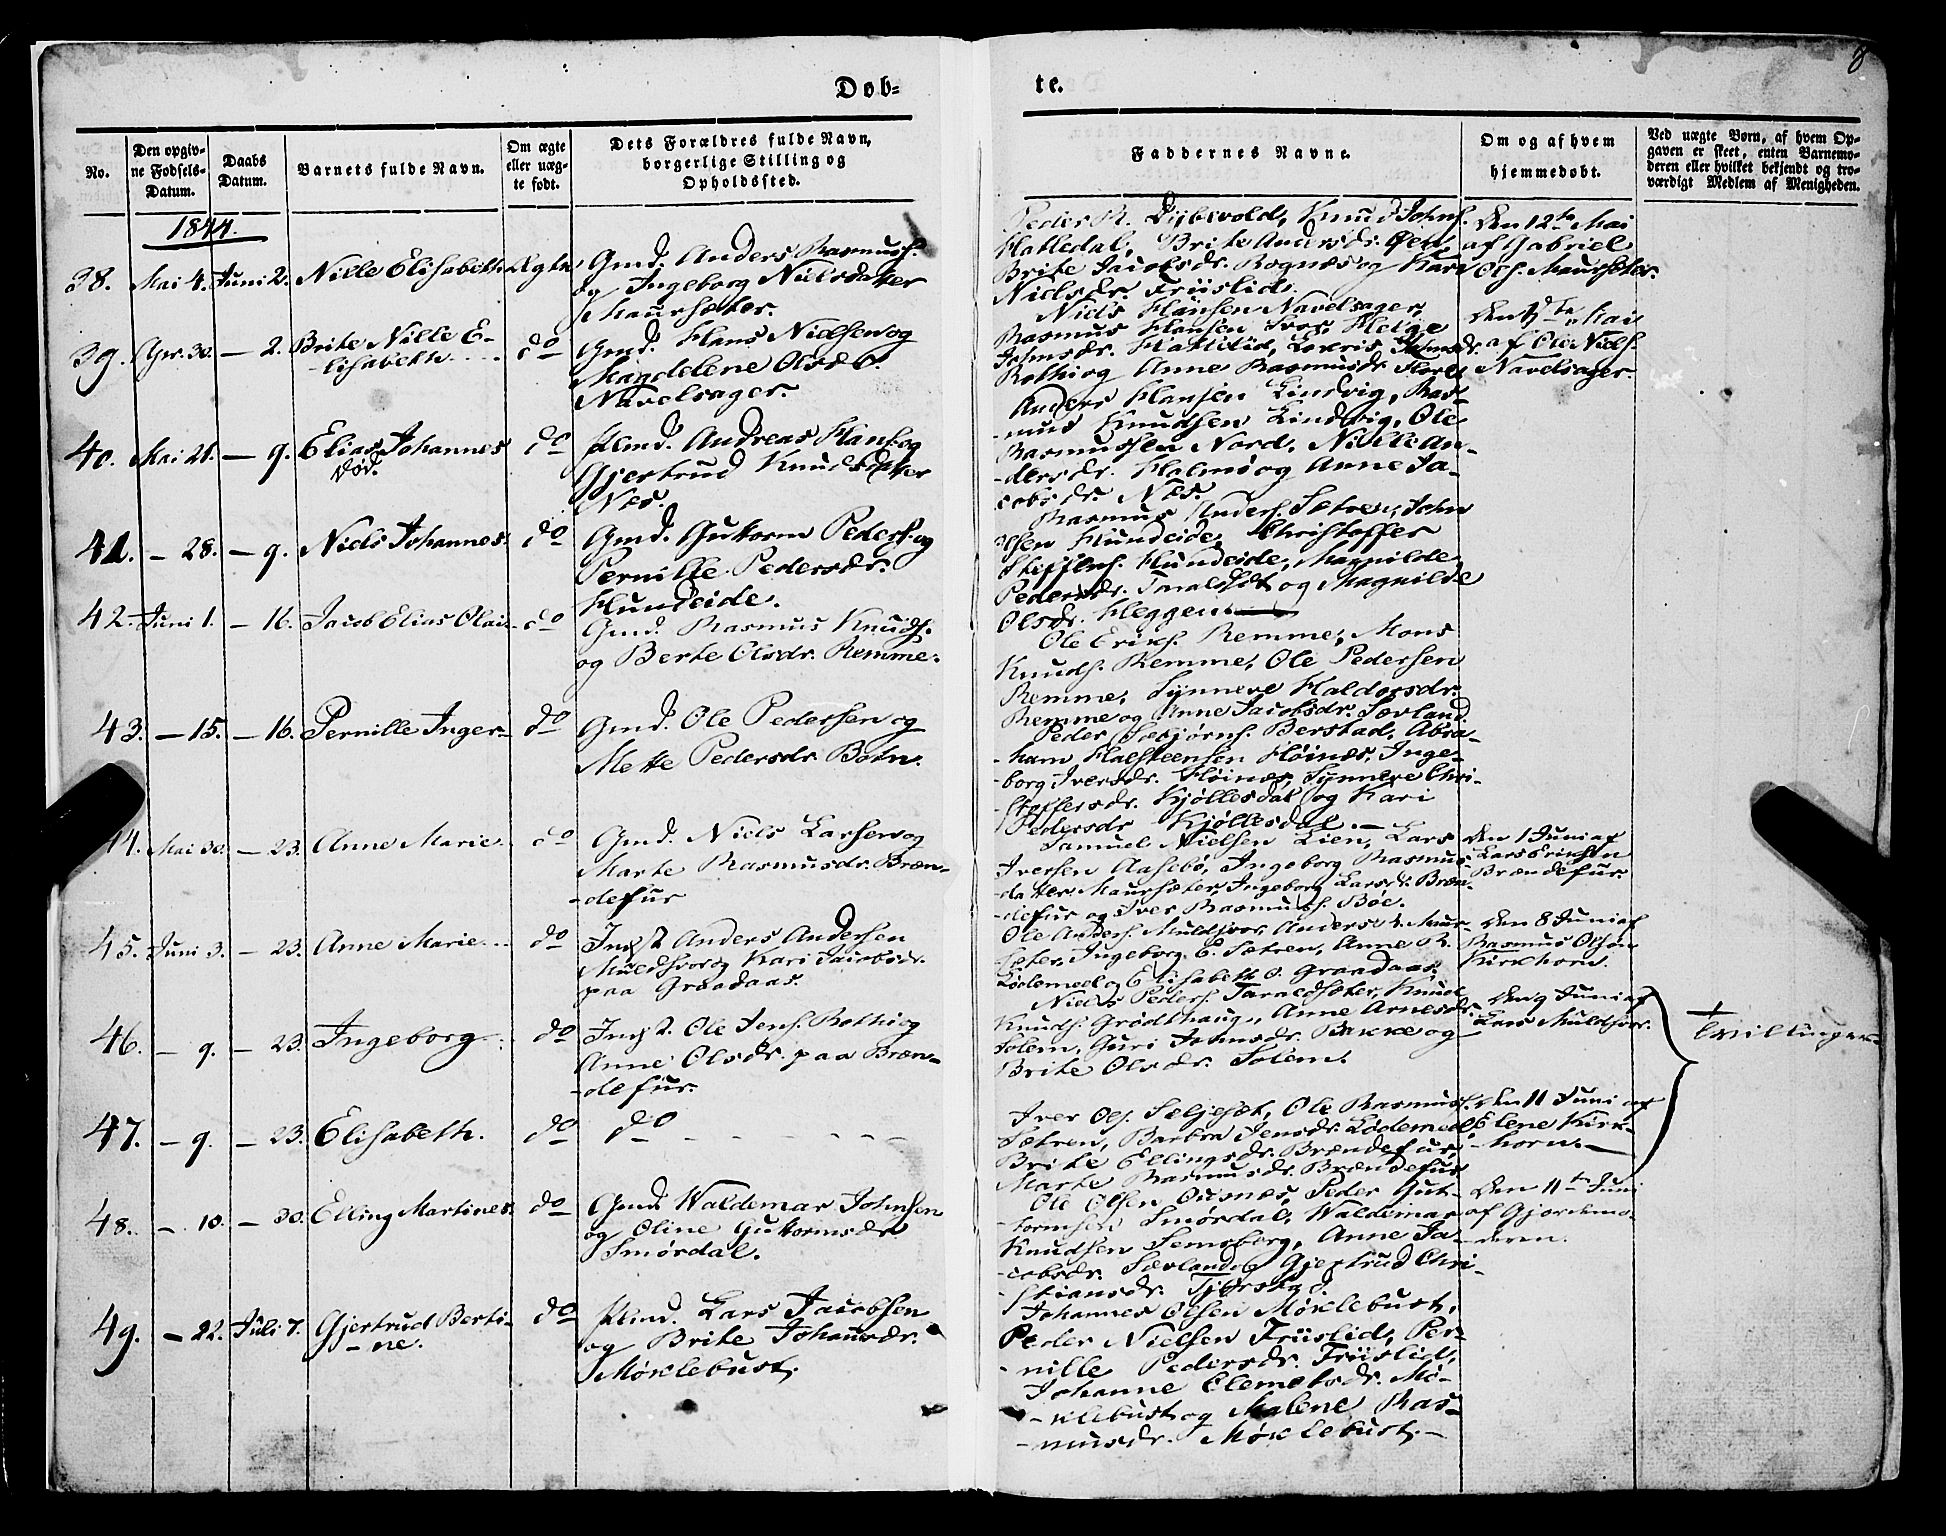 8
Døb-
te.
No.
Den opgiv-
ne Fødsels-
Datum.
Daabs
Datum.
Barnets fulde Navn.
Om ægte
eller uæg-
te født.
Dets Forældres fulde Navn,
borgerlige Stilling og
Opholdssted.
Faddernes Navne.
Om og af hvem
hjemmedøbt.
Ved uægte Børn, af hvem Op-
gaven er skeet, enten Barnemo-
deren eller hvilket bekjendt og tro-
værdigt Medlem af Menigheden.
1844.
38. Mai 4. Juni 2. Nille Elisabeth Ægte
Gmd. Anders Rasmuss.
og Ingeborg Nielsdatter
Maursæter.
Peder R. Dybevold, Knud Johns.
Hatledal, Brite Andersdr. Øen,
Brite Jacobsdr. Rognæs og Kari
Nielsdr. Friislid.
Den 12te Mai
af Gabriel
Ols. Maursæter.
39. Apr. 30. — 2. Brite Nille E-
lisabeth do
Gmd. Hans Nielsen og
Magdelene Olsdr.
Navelsager.
Niels Hansen Navelsager,
Rasmus Hansen Svor, Helge
Johnsdr. Hatlelid, Lovris Johnsdr.
Rothi og Anne Rasmusdr.
Mai
af Ole Niels.
Navelsager.
40. Mai 21. — 9. Elias Johannes
død.
do
Hmd. Andreas Hans. og
Gjertrud Knudsdatter
Næs.
Anders Hansen Lindvig, Ras-
mus Knudsen Lindvig, Ole
Rasmussen Nord, Nikkli An-
dersdr. Halmø og Anne Ja-
cobsdr. Næs.
41. — 28. — 9. Niels Johannes. do
Gmd. Guttorm Peders. og
Pernille Pedersdr.
Hundeide.
Rasmus Anders. Sætren, John
Olsen Hundeide, Christoffer
Steffens. Hundeide, Magnilde
Pedersdr. Taraldset og Magnilde
Olsdr. Heggen
42. Juni 1. — 16. Jacob Elias Olai do
Gmd. Rasmus Knuds.
og Berte Olsdr. Remme.
Ole Eriks. Remme, Mons
Knuds. Remme, Ole Pedersen
Remme, Synneve Haldorsdr.
Remme og Anne Jacobsdr. Sævland.
43. — 15. — 16. Pernille Inger do
Gmd. Ole Pedersen og
Mette Pedersdr. Botn.
Peder Sebjørns. Berstad, Abra-
ham Halsteensen Høinæs, Inge-
borg Iversdr. Høinæs, Synneve Chri-
stoffersdr. Kjøllesdal og Kari
Pedersdr. Kjøllesdal.
44. Mai 30. — 23. Anne Marie do
Gmd. Niels Larsen og
Marte Rasmusdr. Bræn-
defur
Samuel Nielsen Lien, Lars
Iversen Aasebø, Ingeborg Rasmus-
datter Maursæter, Ingeborg Larsdr. Bræn-
defur og Iver Rasmuss. Bøe.
Den 1 Juni af
Lars Eriksen
Brændefur.
45. Juni 3. — 23. Anne Marie do
Indst Anders Andersen
Muldsvor og Kari Jacobsdr.
paa Graadaas.
Ole Anders. Muldsvor, Anders R. Maur-
sæter, Ingeborg E. Sætren, Anne R.
Lødemeel og Elisabeth O. Graadaas.
Den 8 Juni af
Rasmus Olsen
Kirkhorn.
46. — 9. — 23. Ingeborg do
Indst. Ole Jens. Rothi og
Anne Olsdr. paa Bræn-
defur.
Niels Peders. Taraldsæter, Knud
Knuds. Grødthaug, Anne Arnesdr.
Solem, Guri Johnsdr. Bakke og
Brite Olsdr. Solem.
Den 9 Juni af
Lars Muldsvor.
+
Tvillinger
47. — 9. — 23. Elisabeth. do
do
Iver Ols. Seljeset, Ole Rasmuss.
Sætren, Barbra Jensdr. Lødemeel,
Brite Ellingsdr. Brændefur,
Marte Rasmusdr. Brændefur
Den 11 Juni af
Elene Kirk-
horn.
48. — 10. — 30. Elling Martines. do
Gmd. Waldemar Johnsen
og Oline Guttormsdr.
Smørdal.
Ole Olsen Ousnæs, Peder Gut-
tormsen Smørdal, Waldemar
Knudsen Semsborg, Anne Ja-
cobsdr. Sævland og Gjertrud Chri-
stiansdr.
Den 11te Juni
af Gjordemo-
deren.
49. — 22. Juli 7. Gjertrud Berti-
ne. do
Hmd. Lars Jacobsen
og Brite Johannsdr.
Møklebust.
Johannes Olsen Møklebust,
Peder Nielsen Friislid, Per-
nille Pedersdr. Friislid,
Johanne Clemetsdr. Mø-
klebust og Malene Ras-
musdr. Møklebust.